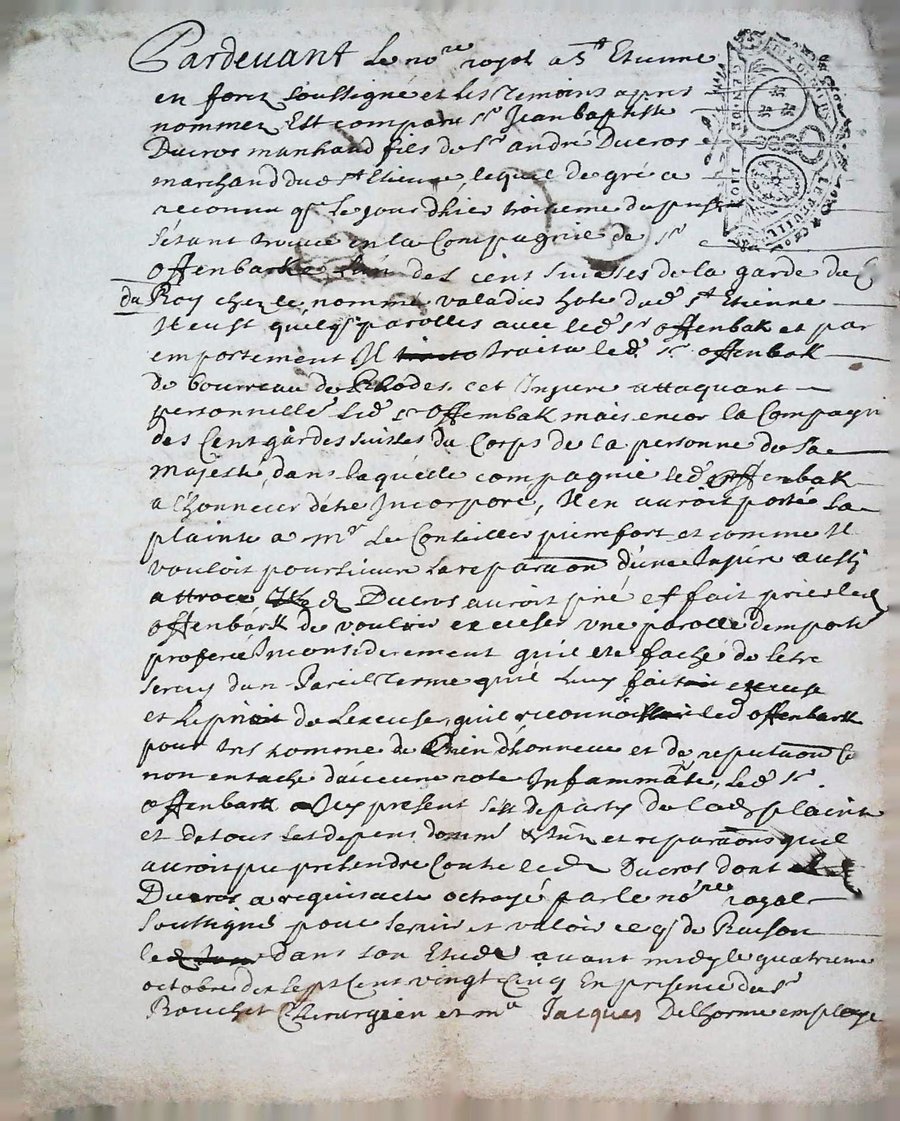 Pardevant Le no.re royal a S.t Etienne
en forez soussigné et les temoins apres
nommez Est comparu s.r Jean baptiste
Ducros marchand fils de S.r andré Ducros
marchand dud s.t Etienne, lequel de gré a
reconnu q. le jourdhier troisieme du
sétant trouvé en la Compagnie de s.r
offenbark des cent suisses de la garde du
du Roy chez le nommé valadier hote dud. s.t Etienne
Il eust quelq. parolles avec led. s.r offenbak et par
emportement Il traita led. s.r offenbak
de bourreau de Rhodes, cet Injure attaquant
personnelle led. s.r offembak mais encor la Compagn
des Cent gardes suisses du Corps de la personne de sa
majesté, dans laquelle compagnie led. offenbak
a lhonneur détre Incorporé, Il en auroit porté sa
plainte a m.r Le Conseiller pierrefort et comme Il
vouloit poursuivre la reparaon d'une Injure aussy
attroce led Ducros auroit prié et fait prier led
offenbark de vouloir excuser une parolle demporté
proferée Inconsiderement quil est faché de sétre
servy dun Pareil terme quil luy fait excuse
et le prie de Lexcuse, quil reconnoit led offenbark
pour tres homme de Bien dhonneur et de reputaon
non entaché daucune note Infammante, Led. s.r
offenbark a Icy present sest departy de lad. plainte
et de tous les depens dom. Int. et reparaons quil
auroit pu pretendre Contre led Ducros dont
Ducros a requis acte octroyé par le no.re royal
soussigné pour servir et valoir ce q. de Raison
dans son Etude avant midy le quatrieme
octobre dix sept Cent vingt Cinq En presence de s.r
Rouchet Chirurgien et m.e Jacques Delhorme employé